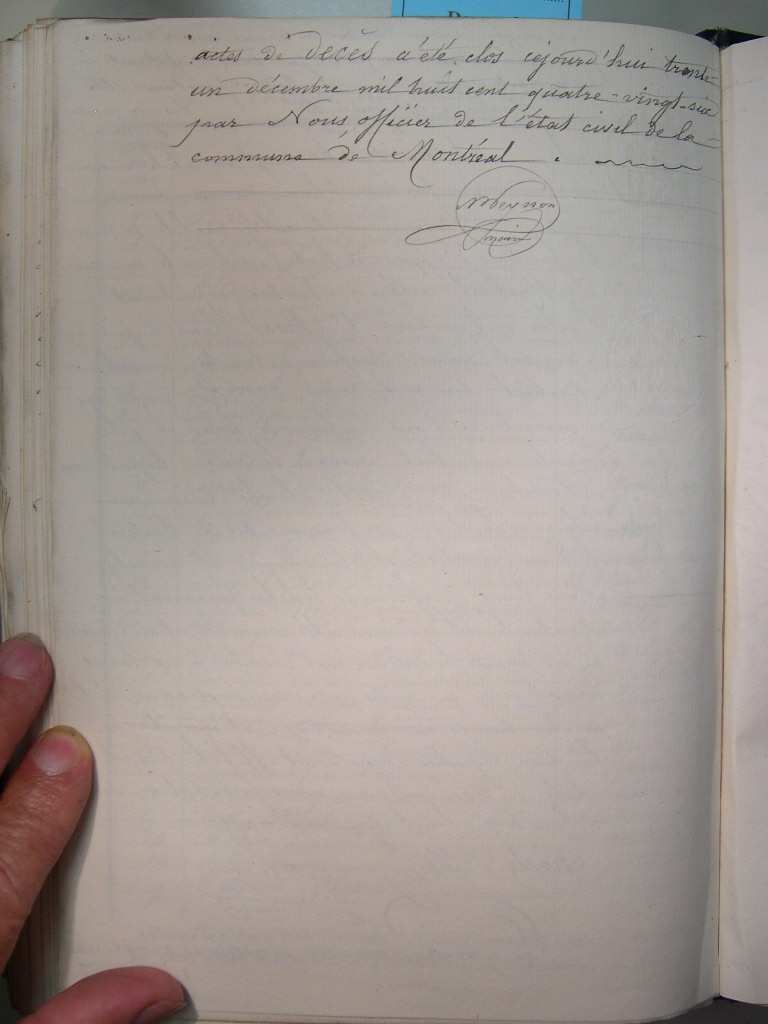 actes de décès a été clos cejourd'hui trente-
un décembre mil huit cent quatre-vingt-six
par Nous officier de l'état civil de la
commune de Montréal.